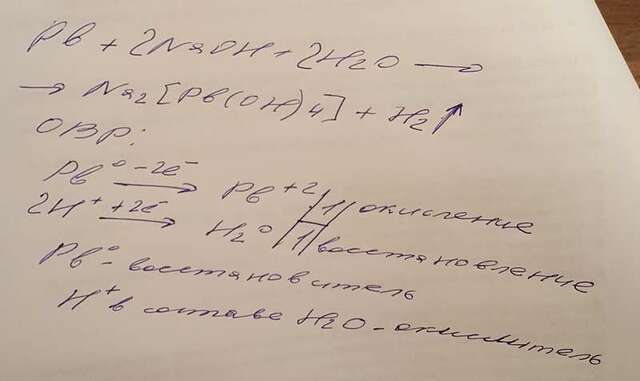 Pb + 2NaOH + 2H2O →
→ Na2[Pb(OH)4] + H2↑
ОВР:
Pb⁰ -2e⁻ → Pb⁺² | 1 | окисление
2H⁺ +2e⁻ → H2⁰ | 1 | восстановление
Pb⁰ - восстановитель
H⁺ в составе H2O - окислитель